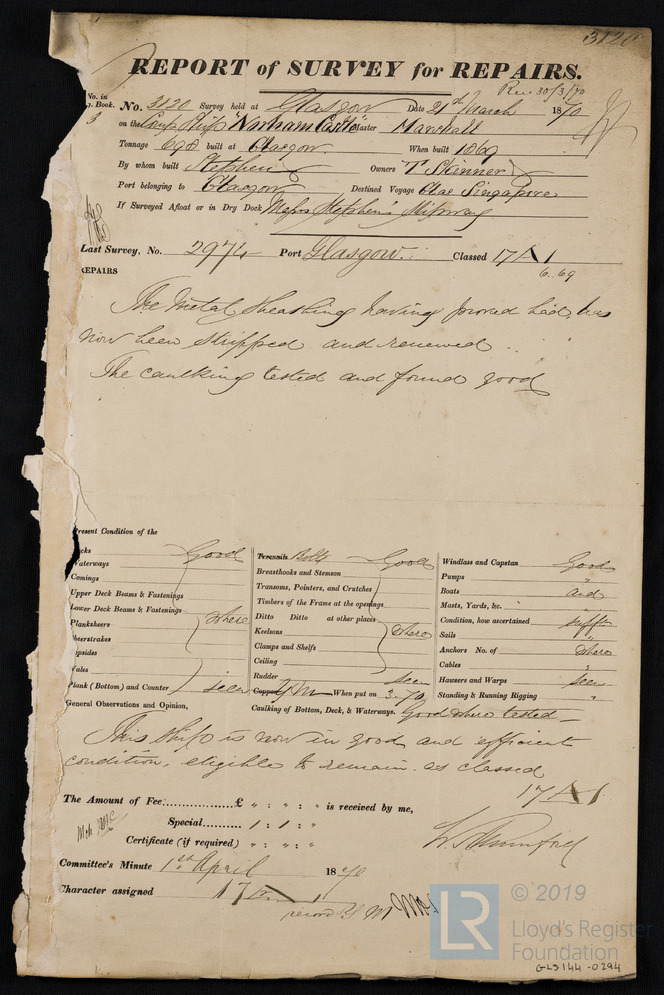 3120
REPORT of SURVEY for REPAIRS.
Rec 30/3/70
No. in
g. Book. No. 3120 Survey held at Glasgow Date 21st March 1870
3 on the Comp Ship "Warham Castle" Master Marshall
Tonnage 698 built at Glasgow When built 1869
By whom built Stephen Owners T Skinner
Port belonging to Glasgow Destined Voyage Singapore
If Surveyed Afloat or in Dry Dock Messrs Stephen's Slipway
Last Survey, No. 2974 Port Glasgow Classed 17 A 1
6.69
REPAIRS
The Metal Sheathing having proved bad, has
now been stripped and renewed.
The caulking tested and found good
Present Condition of the
cks Good
Waterways
Comings
Upper Deck Beams & Fastenings
Lower Deck Beams & Fastenings where
Planksheers
heerstrakes
opsides
ales
Plank (Bottom) and Counter seen
General Observations and Opinion,
Treenails Bolts Good
Breasthooks and Stemson
Transoms, Pointers, and Crutches
Timbers of the Frame at the openings
Ditto Ditto at other places
Keelsons where
Clamps and Shelfs
Ceiling
Rudder seen
Copper YM When put on 3.70
Caulking of Bottom, Deck, & Waterways. Good where tested
Windlass and Capstan Good
Pumps "
Boats and
Masts, Yards, &c. "
Condition, how ascertained sufft
Sails "
Anchors No. of where
Cables "
Hawsers and Warps seen
Standing & Running Rigging "
This ship is now in good and efficient
condition, eligible to remain as classed
17 A 1
The Amount of Fee............... £ " : " : " is received by me,
Special.......... 1 : 1 : "
Certificate (if required) " : " : "
Committee's Minute 1st April 1870
Character assigned 17 A 1
record YM
© 2019
LR
Lloyd's Register
Foundation
GLS144-0294